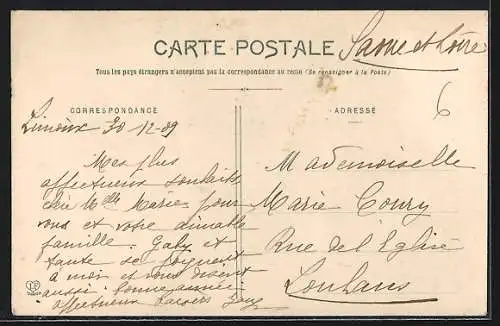 CARTE POSTALE
Saone et Loire
Tous les pays étrangers n'acceptent pas la correspondance au recto (Se renseigner à la Poste)
CORRESPONDANCE
Limoux 30 12-09
Mes plus
affectueux souhaits
chère Mlle Marie, pour
vous et votre aimable
famille. Gaby et
tante se joignent
à moi et vous disent
aussi: bonne année.
affectueux baisers
ADRESSE
6
Mademoiselle
Marie Coury
Rue de l'Eglise
Louhans